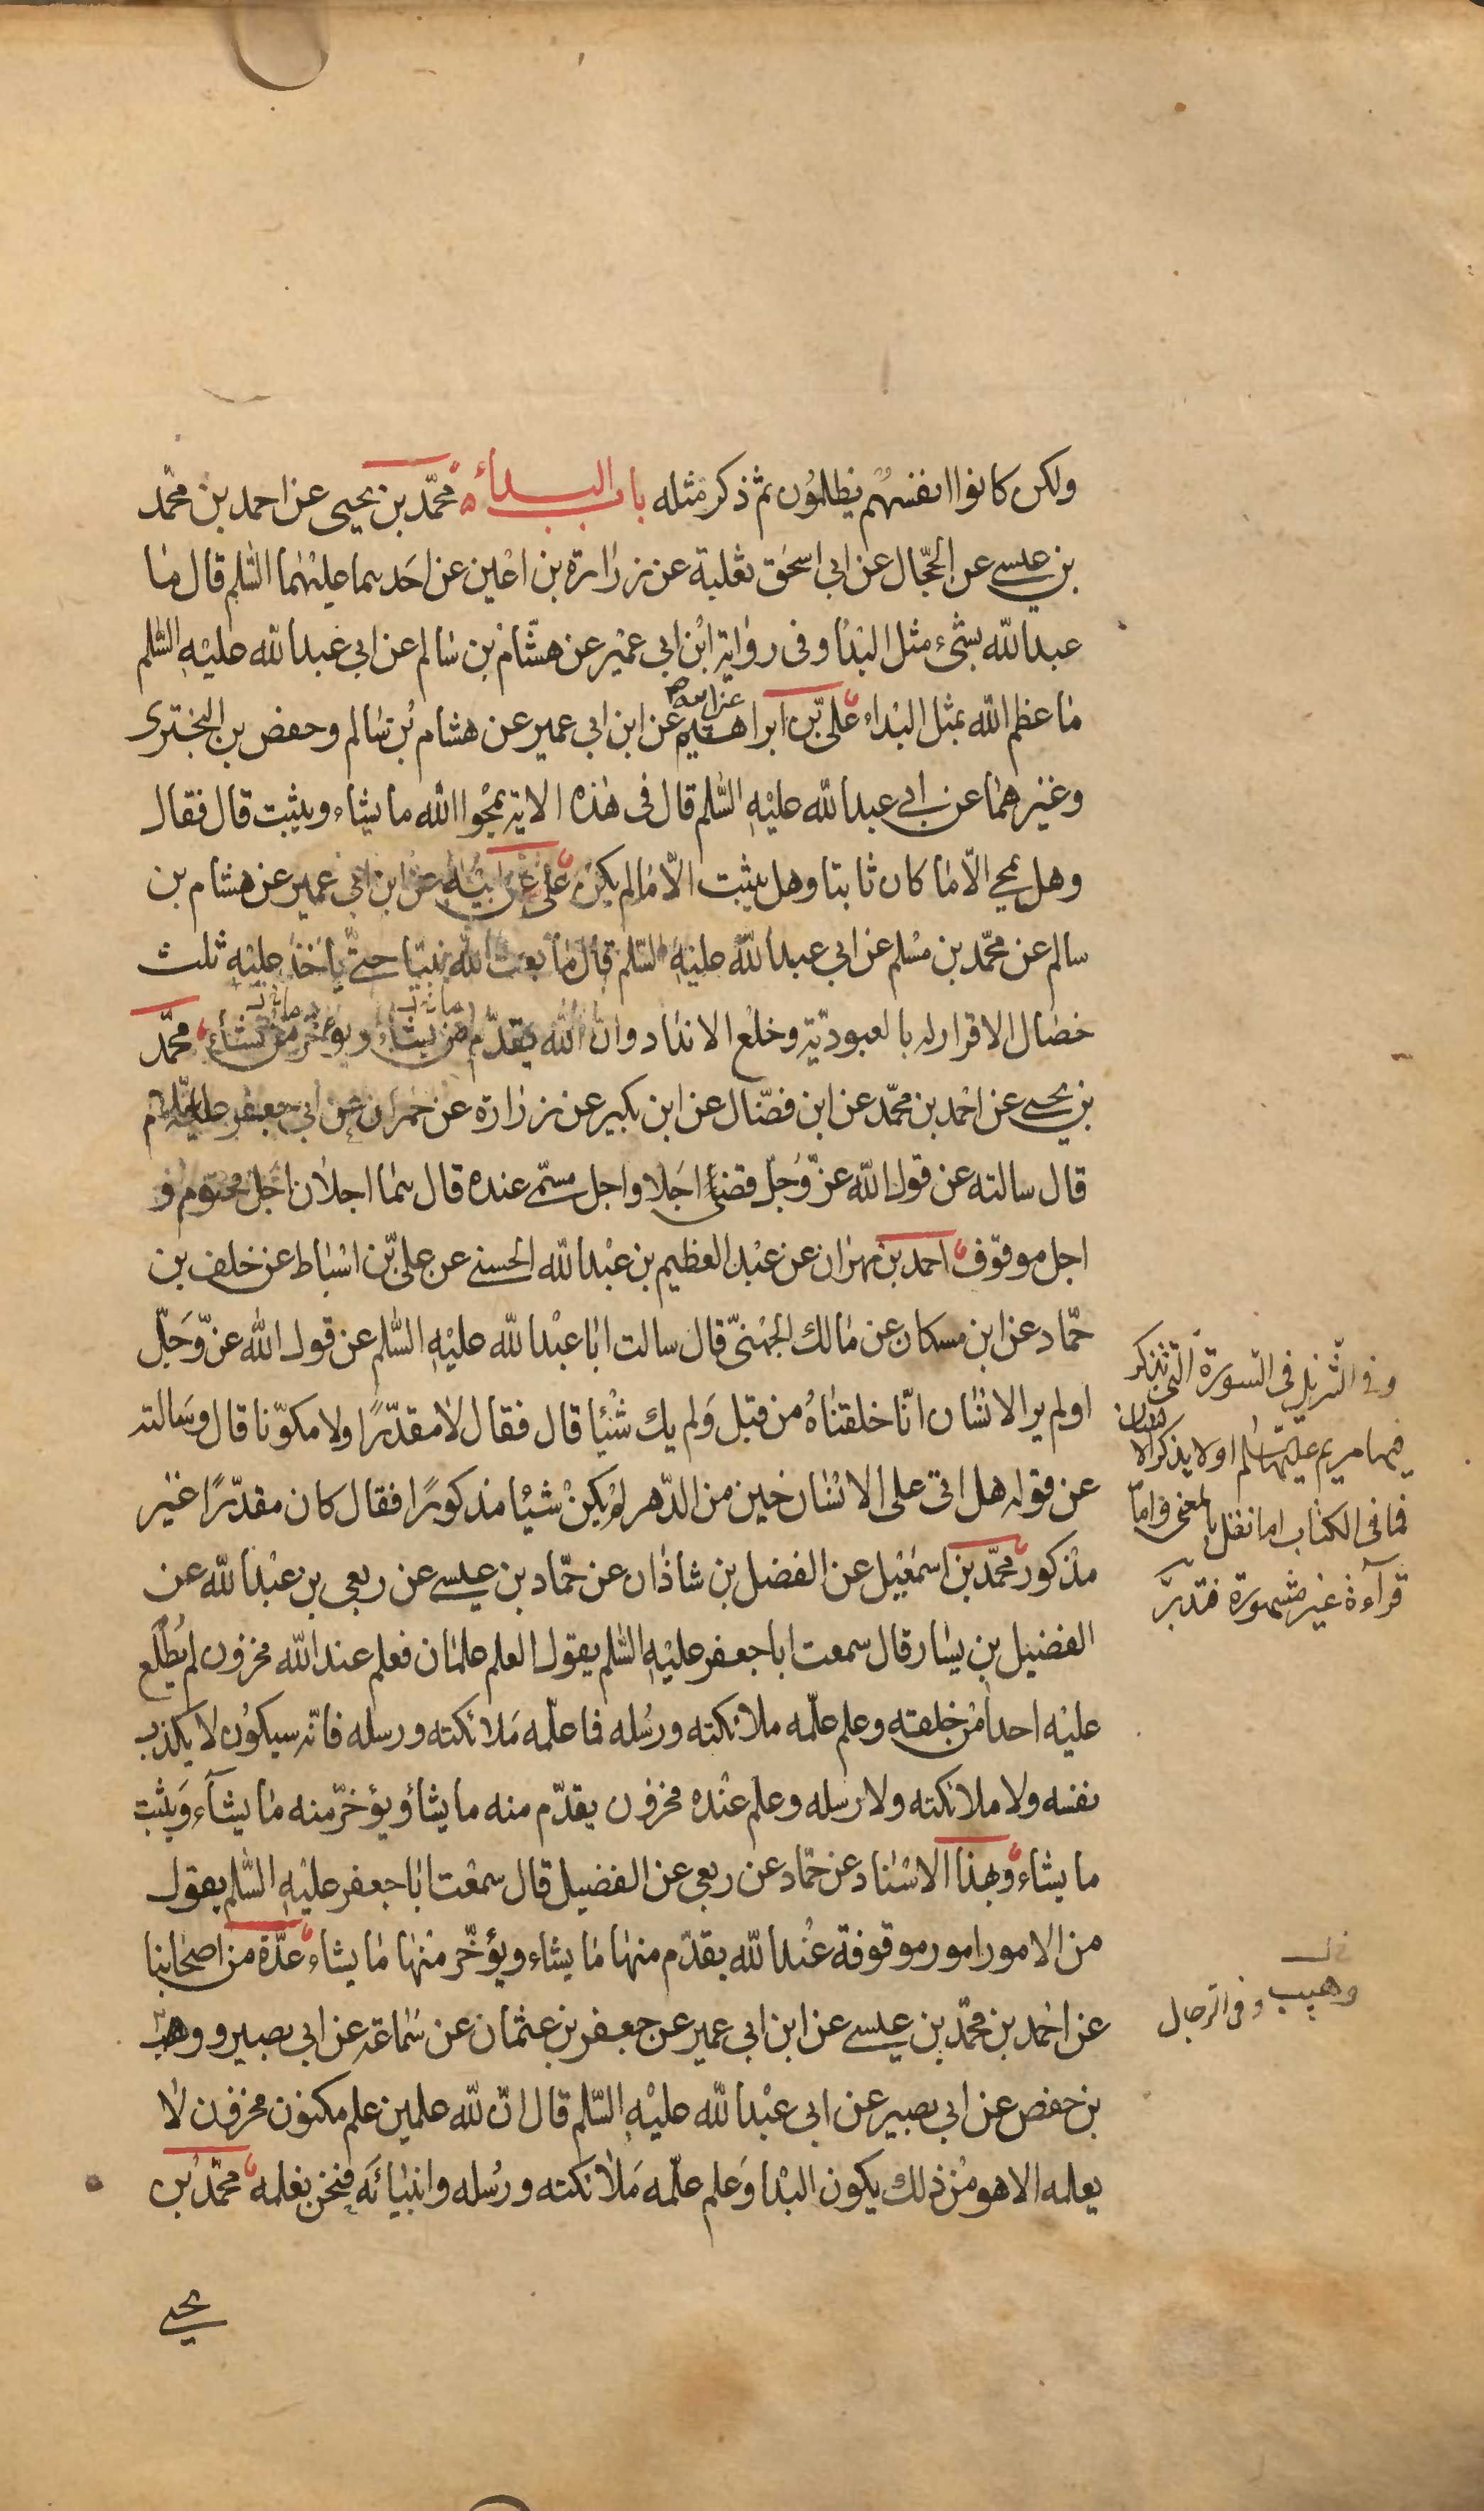 ولكن كانوا انفسهم يظلمون ثم ذكر مثله باب البداء محمّد بن يحيى عن احمد بن محمّد
بن عيسى عن الحجّال عن ابي اسحق ثعلبة عن زرارة بن اعين عن احدهما عليهما السّلم قال ما
عبد الله بشيء مثل البدا وفي رواية ابن ابي عمير عن هشّام بن سالم عن ابي عبد الله عليه السّلم
ما عظم الله بمثل البداء علىّ بن ابراهيم عن ابيه عن ابن ابي عمير عن هشام بن سالم وحفص بن البختري
وغيرهما عن ابي عبد الله عليه السّلم قال في هذه الاية يمحوا الله ما يشاء ويثبت قال فقال
وهل يمحي الّا ما كان ثابتا وهل يثبت الّا ما لم يكن علي عن ابيه عن ابن ابي عمير عن هشام بن
سالم عن محمّد بن مسلم عن ابي عبد الله عليه السّلم قال ما بعث الله نبيّا حتّى ياخذ عليه ثلث
خصال الاقرار له بالعبوديّة وخلع الانداد وانّ الله يقدّم من يشاء ويؤخّر من يشاء محمّد
بن يحيى عن احمد بن محمّد عن ابن فضّال عن ابن بكير عن زرارة عن حمران عن ابي جعفر عليه السّلم
قال سالته عن قول الله عزّ وجلّ قضى اجلا واجل مسمّى عنده قال هما اجلان اجل محتوم و
اجل موقوف احمد بن مهران عن عبد العظيم بن عبد الله الحسني عن علىّ بن اسباط عن خلف بن
حمّاد عن ابن مسكان عن مالك الجهنيّ قال سالت ابا عبد الله عليه السّلم عن قول الله عزّ وجلّ
اولم ير الانسان انّا خلقناه من قبل ولم يك شيئا قال فقال لا مقدّرًا ولا مكوّنا قال وسالته
عن قوله هل اتى على الانسان حين من الدّهر لم يكن شيئا مذكورًا فقال كان مقدّرًا غير
مذكور محمّد بن اسمعيل عن الفضل بن شاذان عن حمّاد بن عيسى عن ربعي بن عبد الله عن
الفضيل بن يسار قال سمعت ابا جعفر عليه السّلم يقول العلم علمان فعلم عند الله مخزون لم يُطلع
عليه احدا من خلقه وعلم علّمه ملائكته ورسله فما علّمه ملائكته ورسله فانّه سيكون لا يكذب
نفسه ولا ملائكته ولا رسله وعلم عنده مخزون يقدّم منه ما يشاء ويؤخّر منه ما يشاء ويثبت
ما يشاء وبهذا الاسناد عن حمّاد عن ربعي عن الفضيل قال سمعت ابا جعفر عليه السّلم يقول
من الامور امور موقوفة عند الله يقدّم منها ما يشاء ويؤخّر منها ما يشاء عدّة من اصحابنا
عن احمد بن محمّد بن عيسى عن ابن ابي عمير عن جعفر بن عثمان عن سماعة عن ابي بصير ووهب
بن حفص عن ابي بصير عن ابي عبد الله عليه السّلم قال انّ لله علمين علم مكنون مخزون لا
يعلمه الا هو من ذلك يكون البدا وعلم علّمه ملائكته ورسله وانبيائه فنحن نعلمه محمّد بن
يحيى
وفي التنزيل في السورة التي تذكر
فيها مريم عليها السلم اولا يذكر الانسان
فما في الكتاب اما نقل بالمعنى واما
قرآءة غير مشهورة فتدبّر
وهيب وفي الرجال